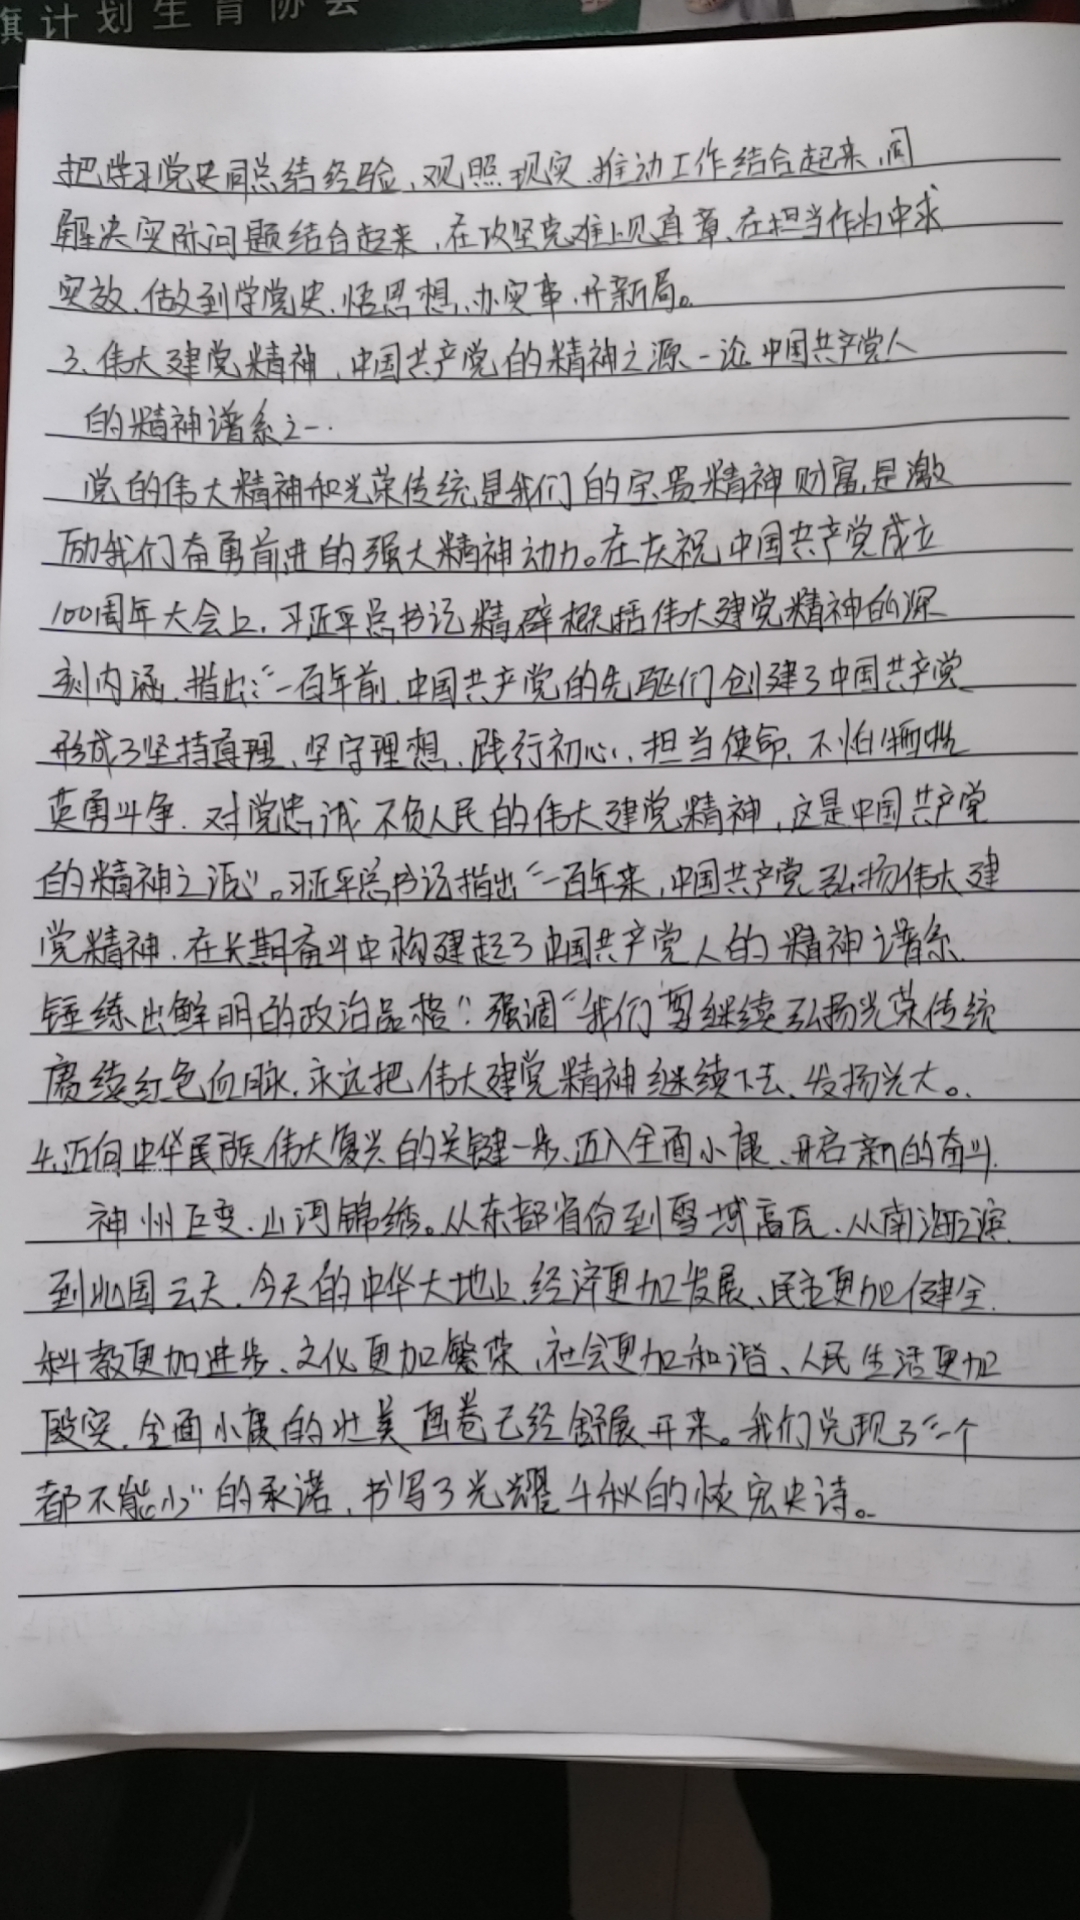 旗计划生育协会
把学习党史同总结经验、观照现实、推动工作结合起来,同
解决实际问题结合起来,在攻坚克难上见真章、在担当作为中求
实效、做到学党史、悟思想、办实事、开新局。
3、伟大建党精神,中国共产党的精神之源一论中国共产党人
的精神谱系之一.
党的伟大精神和光荣传统是我们的宝贵精神财富,是激
励我们奋勇前进的强大精神动力。在庆祝中国共产党成立
100周年大会上,习近平总书记精辟概括伟大建党精神的深
刻内涵,指出:“一百年前,中国共产党的先驱们创建了中国共产党
形成了坚持真理、坚守理想、践行初心、担当使命、不怕牺牲
英勇斗争、对党忠诚不负人民的伟大建党精神,这是中国共产党
的精神之源”。习近平总书记指出“一百年来,中国共产党弘扬伟大建
党精神、在长期奋斗中构建起了中国共产党人的精神谱系、
锤练出鲜明的政治品格”!强调“我们要继续弘扬光荣传统
赓续红色血脉,永远把伟大建党精神继续下去、发扬光大。
4.迈向中华民族伟大复兴的关键一步、迈入全面小康、开启新的奋斗.
神州巨变、山河锦绣。从东部省份到雪域高瓦、从南海之滨
到北国云天,今天的中华大地上,经济更加发展、民主更加健全、
科教更加进步、文化更加繁荣、社会更加和谐、人民生活更加
殷实,全面小康的壮美画卷已经舒展开来。我们兑现了“一个
都不能少”的承诺,书写了光耀千秋的恢宏史诗。